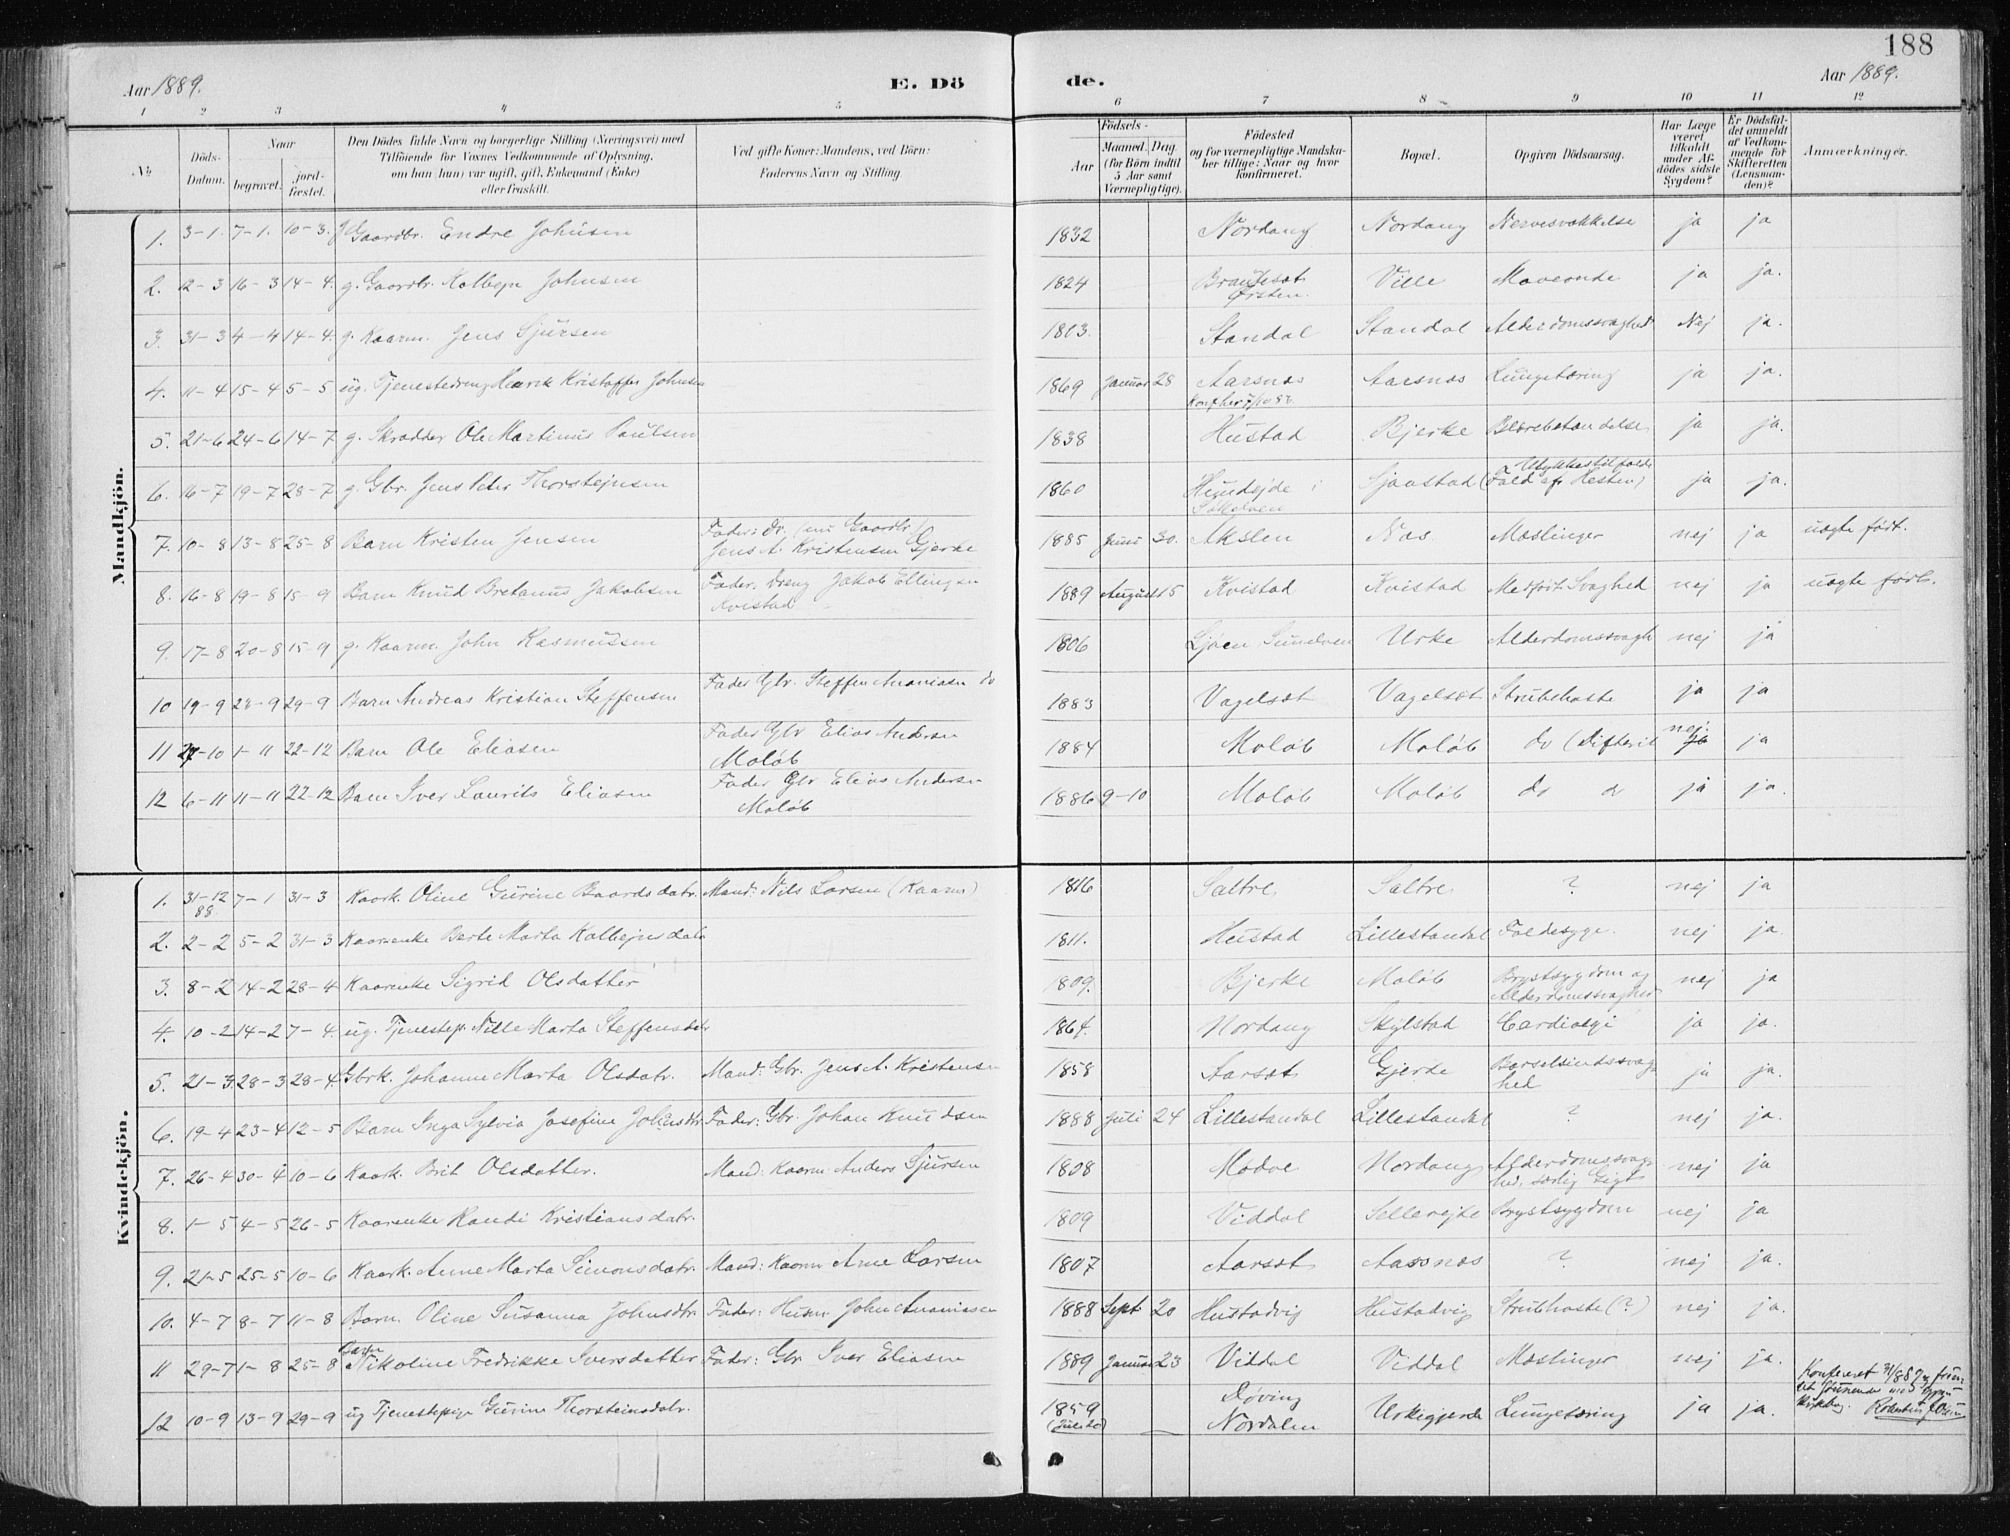 188
Aar 1889.
E. Dö de.
Aar 1889.
1 2 3 4 5 6 7 8 9 10 11 12
No
Döds-Datum.
Naar
begravet.
jordfæstet.
Den Dödes fulde Navn og borgerlige Stilling (Næringsvei) med
Tilföiende for Voxnes Vedkommende af Oplysning,
om han (hun) var ugift, gift, Enkemand (Enke)
eller fraskilt.
Ved gifte Koner: Mandens, ved Börn:
Faderens Navn og Stilling.
Födsels-
Aar
Maaned. Dag.
(for Börn indtil
5 Aar samt
Værnepligtige).
Födested
og for værnepligtige Mandskaber tillige: Naar og hvor
konfirmeret.
Bopæl.
Opgiven Dödsaarsag.
Har Læge
været
tilkaldt
under Afdödes sidste
Sygdom?
Er Dödsfaldet anmeldt
af Vedkommende for
Skifteretten
(Lensmanden)?
Anmærkninger.
Mandkjön.
1. 3-1. 7-1. 10-3. Gaardbr. Endre Johnsen 1832 Nordang Nordang Nervesvækkelse ja ja
2. 12-3 16-3 14-4. g. Gaardbr. Kolbejn Johnsen 1824 Ørsten. Ville Maveonde ja ja.
3. 31-3 4-4 14-4. g. Kaarm. Jens Sjursen 1803. Standal Standal Alderdomssvaghed Nej ja.
4. 11-4 15-4 5-5 ug. Tjenestedreng Henrik Kristoffer Johnsen 1869 Januar 28 Aarsnæs Aarsnæs Lungetæring ja ja.
5. 21-6 24-6 14-7 g. Skrædder Ole Martinus Paulsen 1838 Hustad Bjerke Blærebetændelse ja ja.
6. 16-7 19-7 28-7 g. Gbr. Jens Peter Thorstejnsen 1860 Sjaastad Ulykkestilfælde (Fald af Hesten) ja ja.
7. 10-8 13-8 25-8 Barn Kristen Jensen Fader: Dr. (nu Gaardbr.) Jens A. Kristensen Gjerde 1885 Juni 30. Akslen Næs Mæslinger nej ja uægte født.
8. 16-8 19-8 15-9 Barn Knud Bretanus Jakobsen Fader: Dreng Jakob Ellingsen Kvistad 1889 August 15 Kvistad Kvistad Medfødt Svaghed nej ja uægte født.
9. 17-8 20-8 15-9 g. Kaarm. John Rasmussen 1806 Ljøen Sunelven Urke Alderdomssvagh nej ja
10 19-9 28-9 29-9 Barn Andreas Kristian Steffensen Fader Gbr. Steffen Ananiasen do 1883 Vagelsæt Vagelsæt Strubehoste ja ja
11 27-10 1-11 22-12 Barn Ole Eliasen Fader Gbr Elias Andersen Maløb 1884 Maløb Maløb do (Difterit nej ja
12 6-11 11-11 22-12 Barn Iver Laurits Eliasen Fader Gbr Elias Andersen Maløb 1886 9-10 Maløb Maløb do ja ja.
Kvindekjön.
1. 31-12 88 7-1 31-3 Kaark. Oline Gurine Baardsdatr. Mand: Nils Larsen (Kaarm) 1816 Sætre Sætre ? nej ja
2. 2-2 5-2 31-3 Kaarenke Berte Marta Kolbejnsdatr 1811. Hustad Lillestandal Faldesyge. nej ja.
3. 8-2 14-2 28-4 Kaarenke Sigrid Olsdatter 1809. Bjerke Maløb Brystsygdom og Alderdomssvaghed nej ja
4. 10-2 14-2 7-4. ug. Tjenestep. Nille Marta Steffensdatr 1864. Nordang Skylstad Cardialgi ja ja.
5. 21-3 28-3 28-4. Gbrk. Johanne Marta Olsdatr. Mand: Gbr. Jens A. Kristensen 1858 Aarsæt Gjerde Barselsindssvaghed ja ja.
6. 19-4 23-4 12-5 Barn Inga Sylvia Josefine Johansdtr Fader: Gbr. Johan Knudsen 1888 Juli 24 Lillestandal Lillestandal ? nej ja.
7. 26-4 30-4 10-6 Kaark. Brit Olsdatter. Mand: Kaarm Anders Sjursen 1808 Nordang Alderdomssvaghed, særlig Gigt nej ja
8. 1-5 4-5 26-5 Kaarenke Randi Kristiansdatr. 1809 Viddal Brystsygdom nej ja
9. 21-5 25-5 10-6 Kaark. Anne Marta Simonsdatr. Mand: Kaarm Arne Larsen 1807 Aarsæt Aarsnæs ? nej ja.
10. 4-7 8-7 11-8 Barn. Oline Susanna Johnsdtr. Fader: Husm John Ananiasen 1888 Sept 20 Hustadvig Hustadvig Strubehoste (?) nej ja.
11 29-7 1-8 25-8 Barn Nikoline Fredrikke Iversdatter Fader: Gbr Iver Eliasen 1889 Januar 23 Viddal Viddal Mæslinger nej ja.
12 10-9 13-9 29-9 ug Tjenestepige Gurine Thorsteinsdatr. 1859 Døving Nordalen Urkegjerde Lungetæring ja ja.